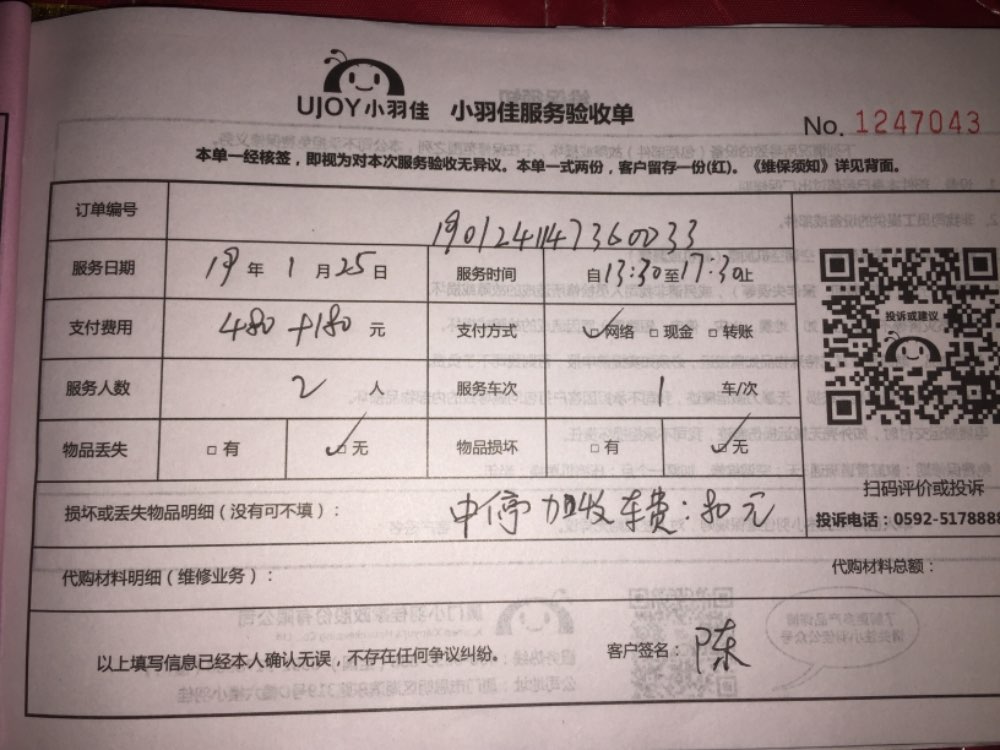 UJOY小羽佳 小羽佳服务验收单
No. 1247043
本单一经核签，即视为对本次服务验收无异议。本单一式两份，客户留存一份(红)。《维保须知》详见背面。
订单编号 1901241147360033
服务日期 19年1月25日 服务时间 自13:30至17:30止
支付费用 480+180元 支付方式 ☑网络 □现金 □转账
投诉或建议
服务人数 2人 服务车次 1车/次
物品丢失 □有 ☑无 物品损坏 □有 ☑无
扫码评价或投诉
损坏或丢失物品明细（没有可不填）： 中停加收车费：80元
投诉电话：0592-5178888
代购材料明细（维修业务）： 代购材料总额：
以上填写信息已经本人确认无误，不存在任何争议纠纷。 客户签名：陈